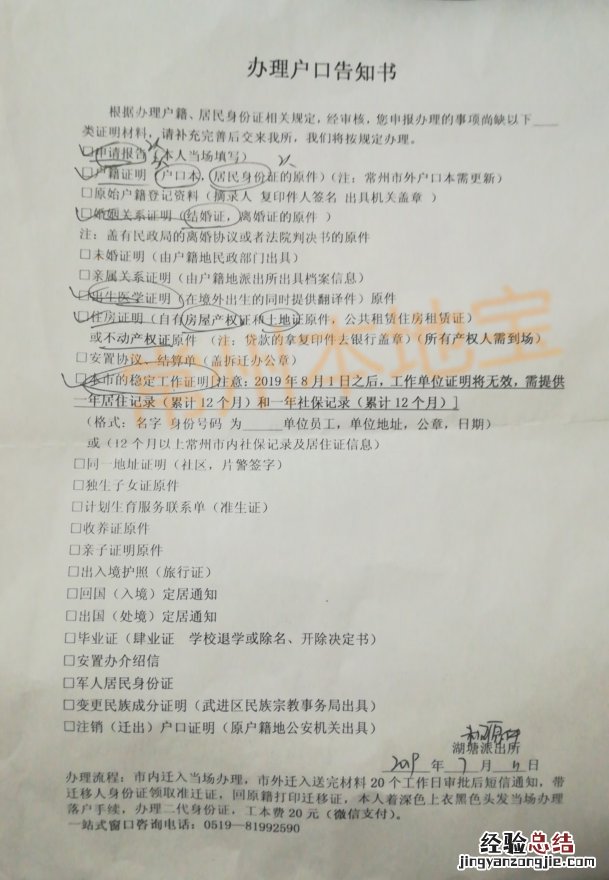 办理户口告知书
根据办理户籍、居民身份证相关规定，经审核，您申报办理的事项尚缺以下____
类证明材料，请补充完善后交来我所，我们将按规定办理。
□申请报告（本人当场填写）
□户籍证明（户口本，居民身份证的原件）（注：常州市外户口本需更新）
□原始户籍登记资料（摘录人 复印件人签名 出具机关盖章）
□婚姻关系证明（结婚证，离婚证的原件）
注：盖有民政局的离婚协议或者法院判决书的原件
□未婚证明（由户籍地民政部门出具）
□亲属关系证明（由户籍地派出所出具档案信息）
□出生医学证明（在境外出生的同时提供翻译件）原件
□住房证明（自有房屋产权证和土地证原件，公共租赁住房租赁证）
或不动产权证原件（注：贷款的拿复印件去银行盖章）（所有产权人需到场）
□安置协议、结算单（盖拆迁办公章）
□本市的稳定工作证明[注意：2019年8月1日之后，工作单位证明将无效，需提供
一年居住记录（累计12个月）和一年社保记录（累计12个月）]
（格式：名字 身份号码 为____单位员工，单位地址，公章，日期）
或（12个月以上常州市内社保记录及居住证信息）
□同一地址证明（社区，片警签字）
□独生子女证原件
□计划生育服务联系单（准生证）
□收养证原件
□亲子证明原件
□出入境护照（旅行证）
□回国（入境）定居通知
□出国（处境）定居通知
□毕业证（肄业证 学校退学或除名、开除决定书）
□安置办介绍信
□军人居民身份证
□变更民族成分证明（武进区民族宗教事务局出具）
□注销（迁出）户口证明（原户籍地公安机关出具）
湖塘派出所
2019 年 7 月 11 日
办理流程：市内迁入当场办理，市外迁入送完材料20个工作日审批后短信通知，带
迁移人身份证领取准迁证，回原籍打印迁移证，本人着深色上衣黑色头发当场办理
落户手续，办理二代身份证，工本费20元（微信支付）。
一站式窗口咨询电话：0519—81992590
常州本地宝
经验总结
jingyanzongjie.com